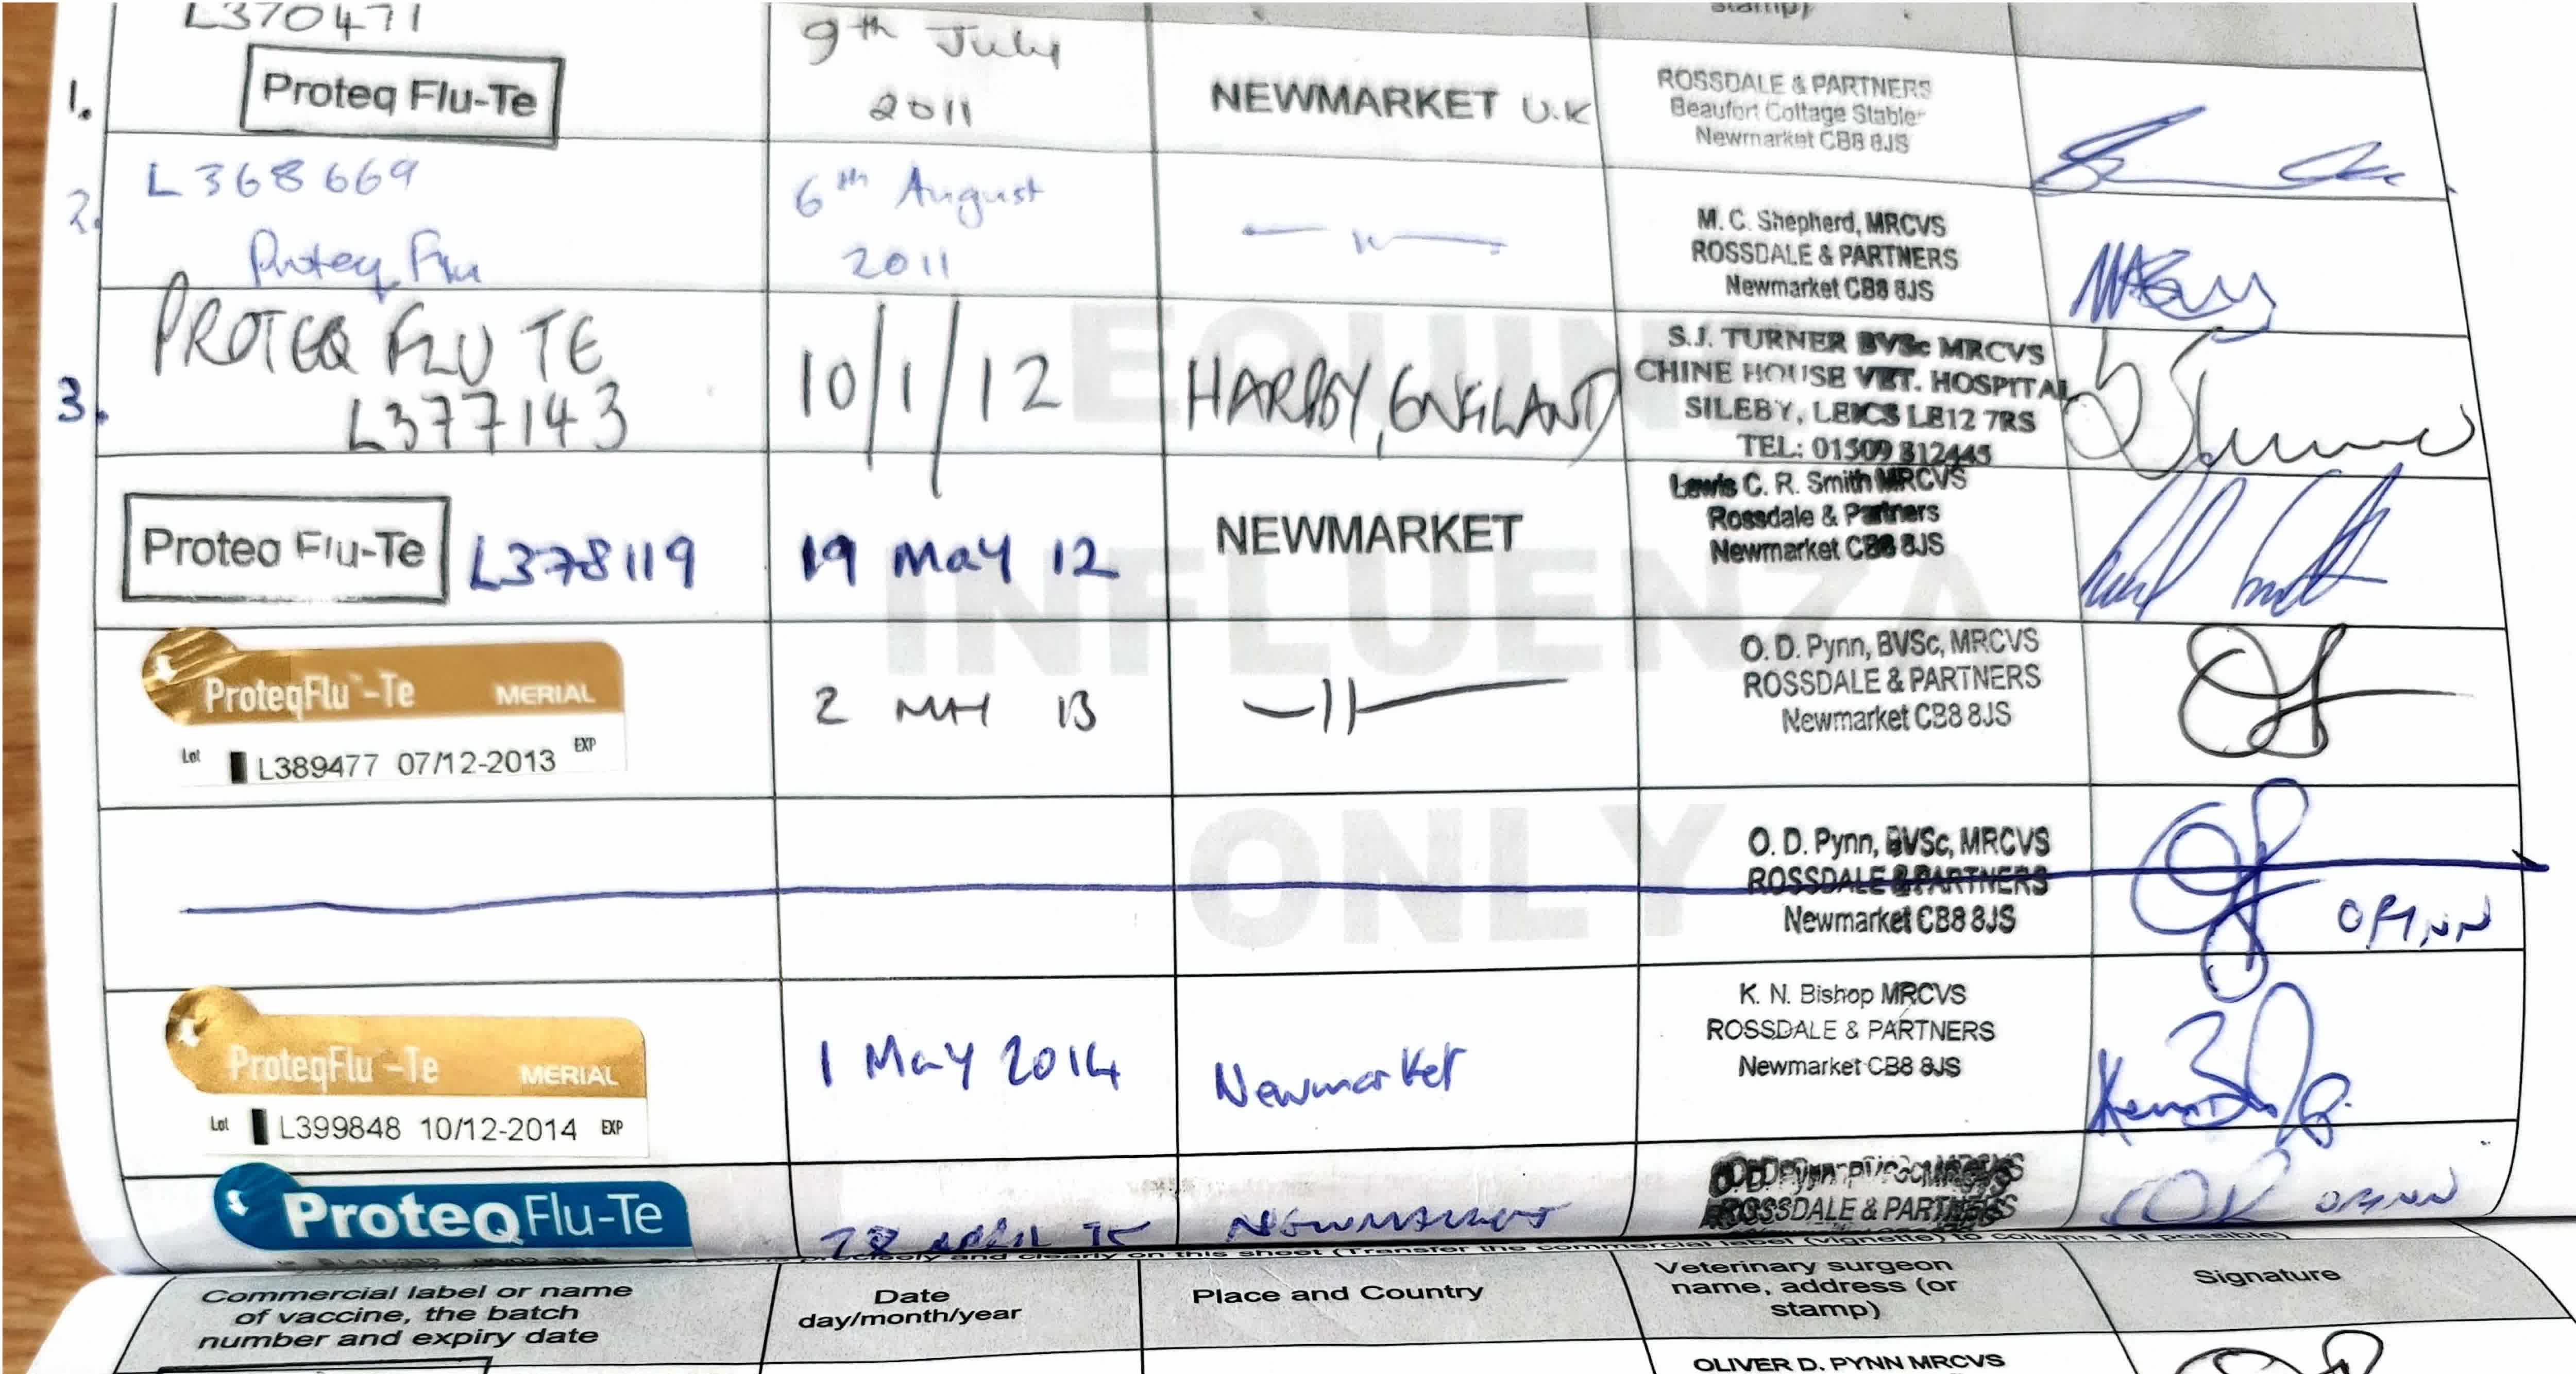 L370471
1. Proteq Flu-Te
9th July
2011
NEWMARKET U.K
ROSSDALE & PARTNERS
Beaufort Cottage Stables
Newmarket CB8 8JS
2. L368669
Proteq Flu
6th August
2011
— " —
M. C. Shepherd, MRCVS
ROSSDALE & PARTNERS
Newmarket CB8 8JS
3. PROTEQ FLU TE
L377143
10/1/12
HARBY, ENGLAND
S.J. TURNER BVSc MRCVS
CHINE HOUSE VET. HOSPITAL
SILEBY, LEICS LE12 7RS
TEL: 01509 812445
Proteq Flu-Te L378119
19 May 12
NEWMARKET
Lewis C. R. Smith MRCVS
Rossdale & Partners
Newmarket CB8 8JS
ProteqFlu-Te MERIAL
Lot L389477 07/12-2013 EXP
2 MAY 13
— " —
O. D. Pynn, BVSc, MRCVS
ROSSDALE & PARTNERS
Newmarket CB8 8JS
O. D. Pynn, BVSc, MRCVS
ROSSDALE & PARTNERS
Newmarket CB8 8JS
O PYNN
ProteqFlu-Te MERIAL
Lot L399848 10/12-2014 EXP
1 May 2014
Newmarket
K. N. Bishop MRCVS
ROSSDALE & PARTNERS
Newmarket CB8 8JS
ProteqFlu-Te
28 APRIL 15
NEWMARKET
O. D. Pynn BVSc MRCVS
ROSSDALE & PARTNERS
O PYNN
EQUINE
INFLUENZA
ONLY
precisely and clearly on this sheet (Transfer the commercial label (vignette) to column 1 if possible)
Commercial label or name
of vaccine, the batch
number and expiry date
Date
day/month/year
Place and Country
Veterinary surgeon
name, address (or
stamp)
Signature
OLIVER D. PYNN MRCVS